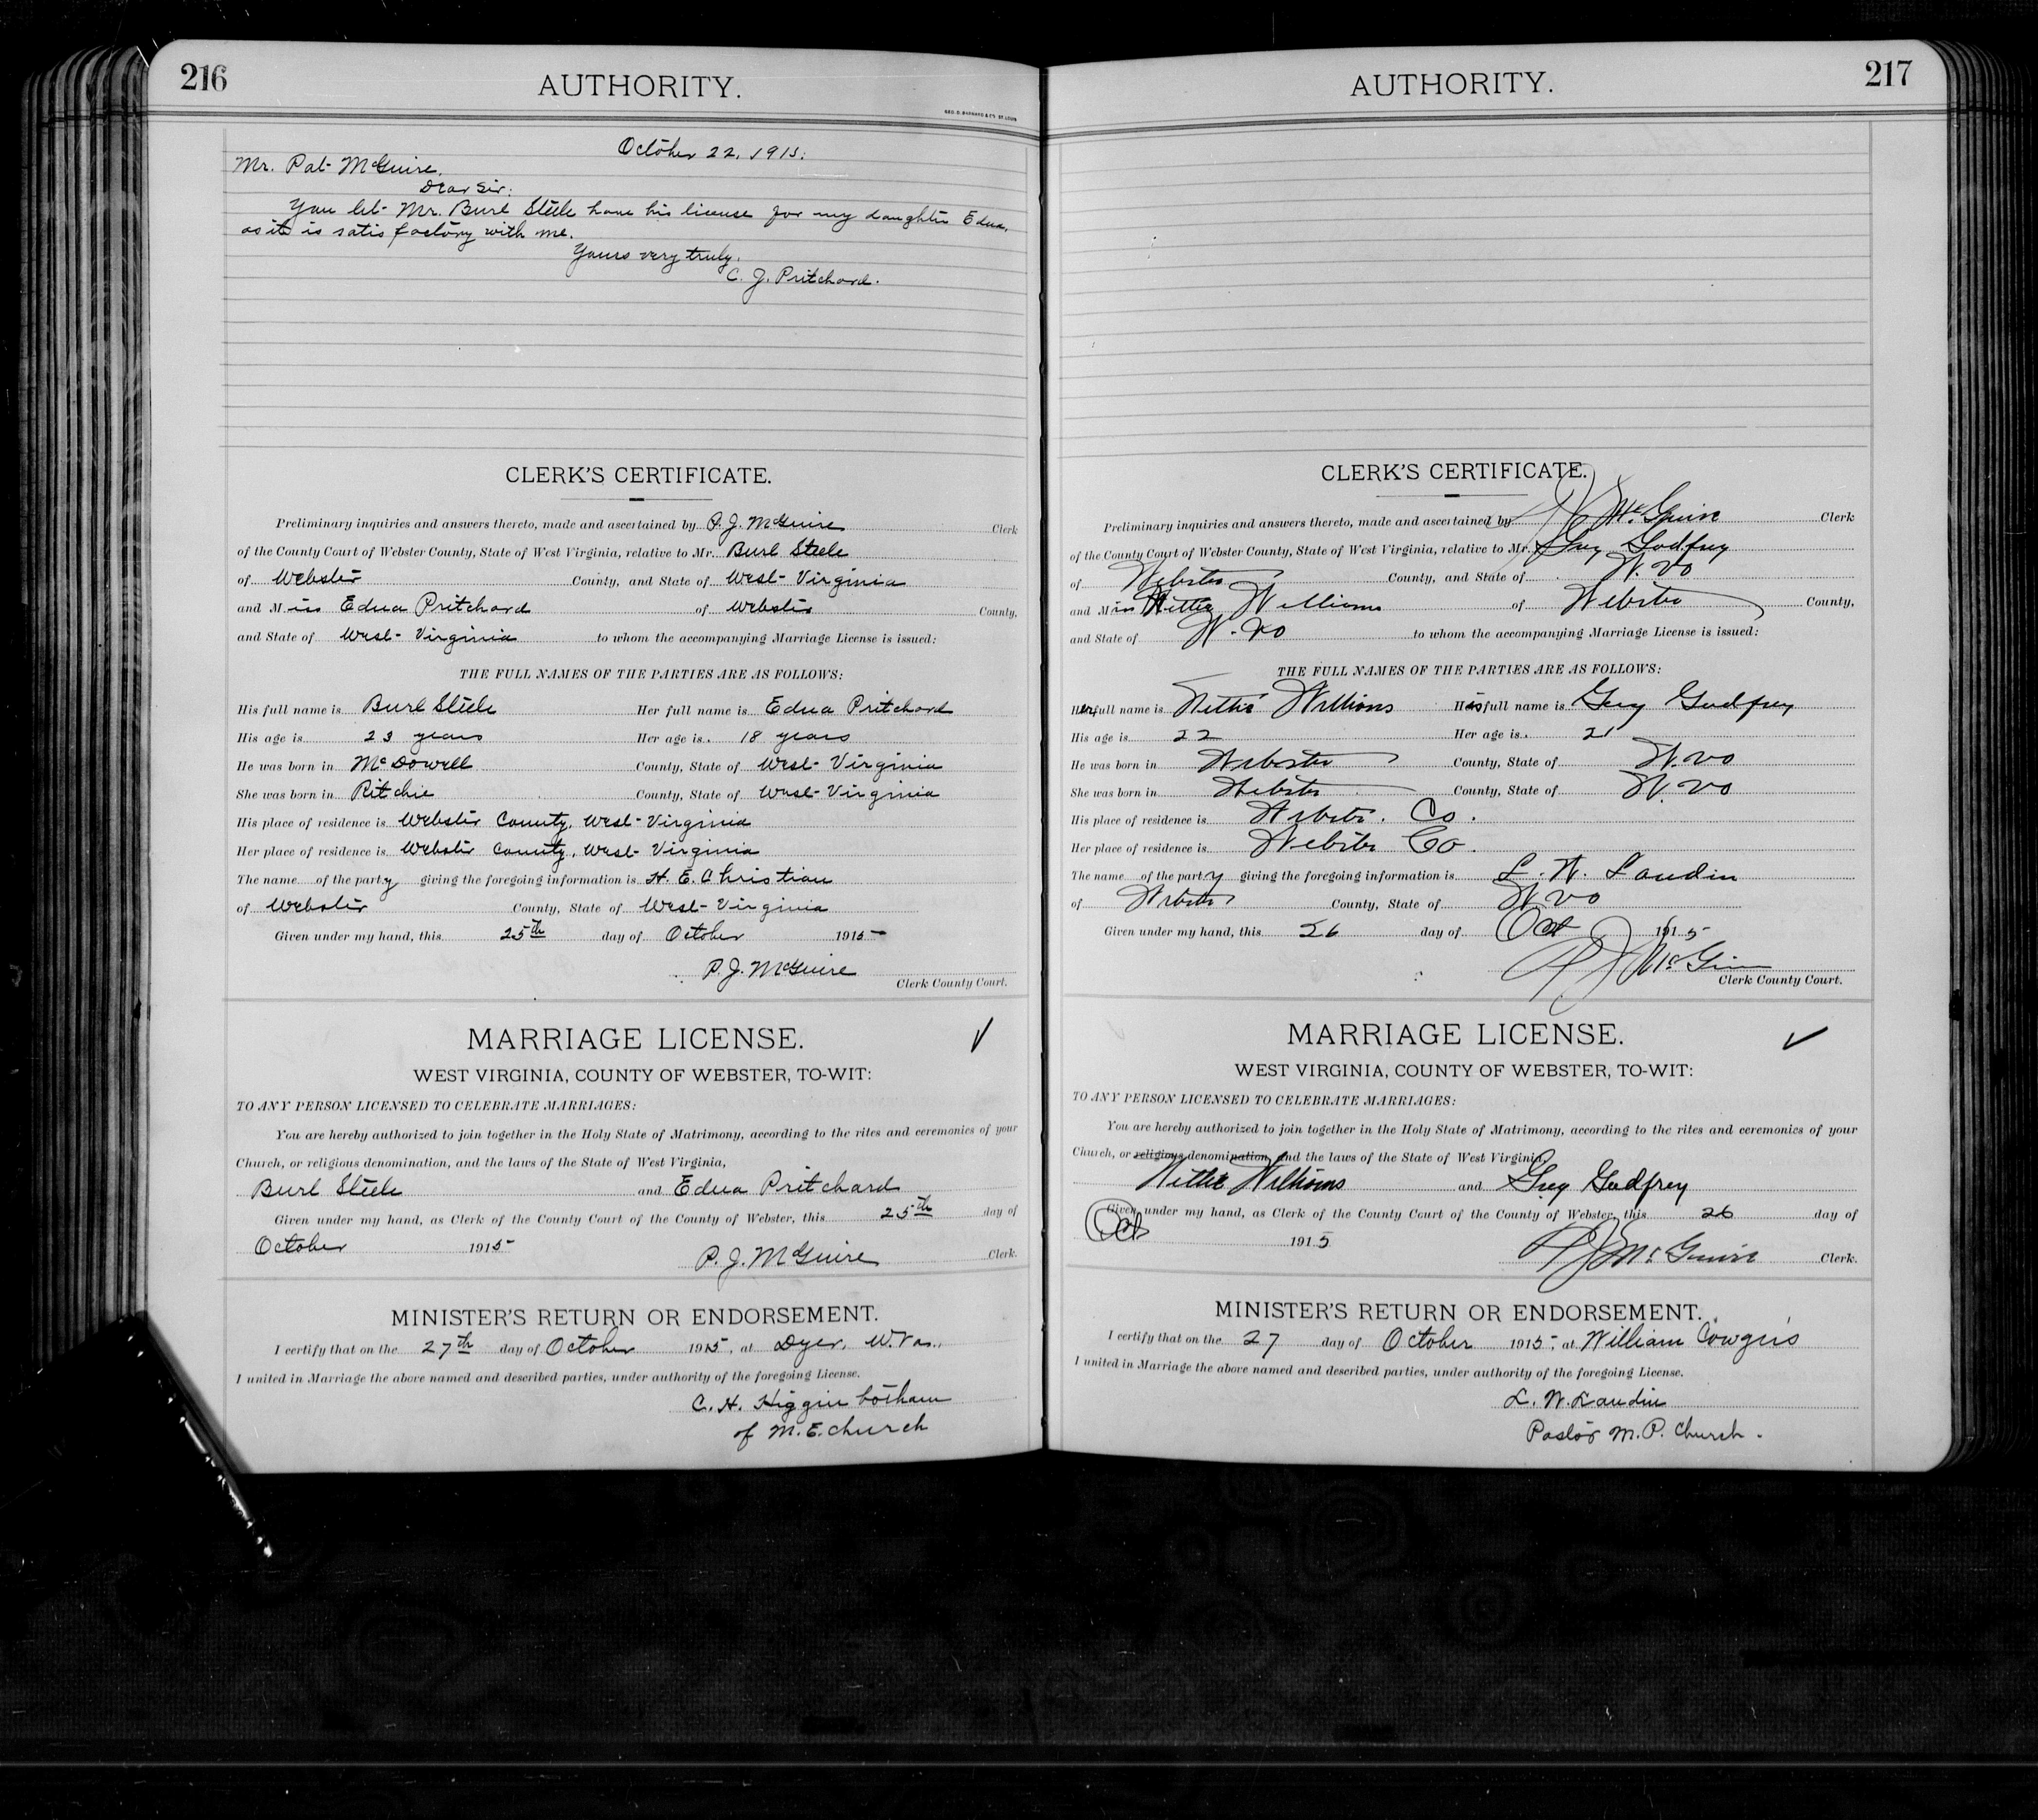 216
AUTHORITY.
GEO. D. BARNARD & CO. ST. LOUIS
October 22, 1915.
Mr. Pat McGuire.
Dear Sir:
You let Mr. Burl Steele have his license for my daughter Edna,
as it is satisfactory with me.
Yours very truly,
C. J. Pritchard.
CLERK'S CERTIFICATE.
Preliminary inquiries and answers thereto, made and ascertained by P. J. McGuire Clerk
of the County Court of Webster County, State of West Virginia, relative to Mr. Burl Steele
of Webster County, and State of West Virginia
and Miss Edna Pritchard of Webster County,
and State of West Virginia to whom the accompanying Marriage License is issued:
THE FULL NAMES OF THE PARTIES ARE AS FOLLOWS:
His full name is Burl Steele Her full name is Edna Pritchard
His age is 23 years Her age is 18 years
He was born in McDowell County, State of West Virginia
She was born in Ritchie County, State of West Virginia
His place of residence is Webster County, West Virginia
Her place of residence is Webster County, West Virginia
The name of the party giving the foregoing information is H. E. Christian
of Webster County, State of West Virginia
Given under my hand, this 25th day of October 1915
P. J. McGuire
Clerk County Court.
MARRIAGE LICENSE.
WEST VIRGINIA, COUNTY OF WEBSTER, TO-WIT:
TO ANY PERSON LICENSED TO CELEBRATE MARRIAGES:
You are hereby authorized to join together in the Holy State of Matrimony, according to the rites and ceremonies of your
Church, or religious denomination, and the laws of the State of West Virginia,
Burl Steele and Edna Pritchard
Given under my hand, as Clerk of the County Court of the County of Webster, this 25th day of
October 1915 P. J. McGuire Clerk.
MINISTER'S RETURN OR ENDORSEMENT.
I certify that on the 27th day of October 1915, at Dyer, W. Va.,
I united in Marriage the above named and described parties, under authority of the foregoing License.
C. H. Higginbotham
of M. E. church
217
AUTHORITY.
CLERK'S CERTIFICATE.
Preliminary inquiries and answers thereto, made and ascertained by P J McGuire Clerk
of the County Court of Webster County, State of West Virginia, relative to Mr. Guy Godfrey
of Webster County, and State of W. Va
and Miss Nettie Williams of Webster County,
and State of W. Va to whom the accompanying Marriage License is issued:
THE FULL NAMES OF THE PARTIES ARE AS FOLLOWS:
Her full name is Nettie Williams His full name is Guy Godfrey
His age is 22 Her age is 21
He was born in Webster County, State of W. Va
She was born in Webster County, State of W. Va
His place of residence is Webster Co.
Her place of residence is Webster Co.
The name of the party giving the foregoing information is L. W. Laudin
of Webster County, State of W. Va
Given under my hand, this 26 day of Oct 1915
P J McGuire
Clerk County Court.
MARRIAGE LICENSE.
WEST VIRGINIA, COUNTY OF WEBSTER, TO-WIT:
TO ANY PERSON LICENSED TO CELEBRATE MARRIAGES:
You are hereby authorized to join together in the Holy State of Matrimony, according to the rites and ceremonies of your
Church, or religious denomination, and the laws of the State of West Virginia,
Nettie Williams and Guy Godfrey
Given under my hand, as Clerk of the County Court of the County of Webster, this 26 day of
Oct 1915 P J McGuire Clerk.
MINISTER'S RETURN OR ENDORSEMENT.
I certify that on the 27 day of October 1915, at William Cowgers
I united in Marriage the above named and described parties, under authority of the foregoing License.
L. W. Laudin
Pastor M. P. Church.